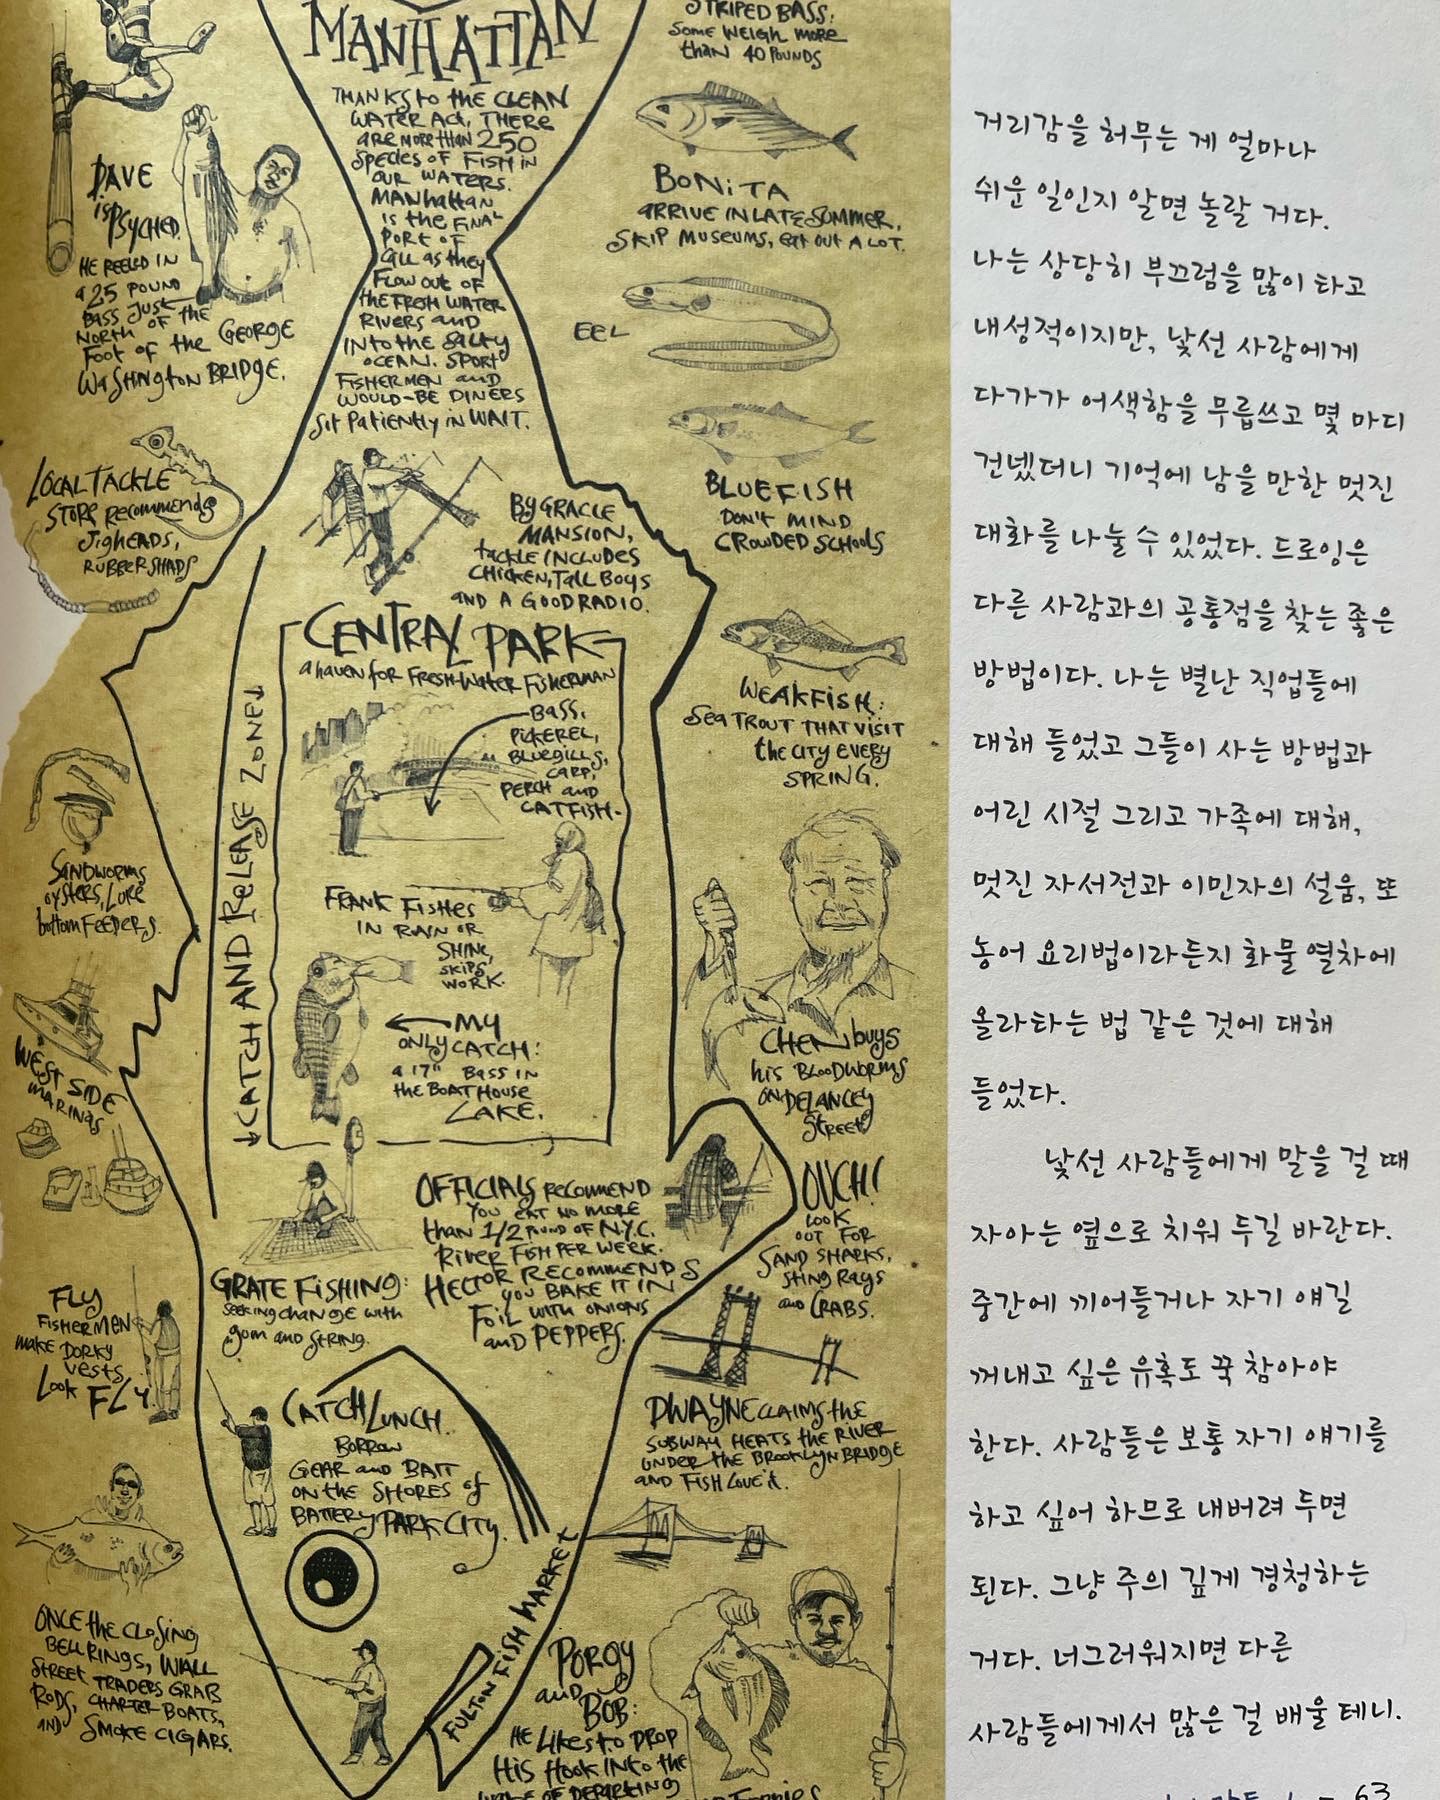 MANHATTAN
THANKS to the CLEAN
WATER Act, THERE
are more than 250
Species of FISH in
our WATERS.
MANHattan
is the FINAL
PORT OF
Call as they
Flow out of
the FRESH WATER
RIVERS and
INto the SALty
OCEAN. SPORT
FISHERMEN and
WOULD-BE DINERS
Sit Patiently in WAIT.
STRIPED BASS:
Some WEIGH MORE
than 40 POUNDS
BONITA
ARRIVE IN LATE SUMMER,
SKIP MUSEUMS, Eat out A LOT.
EEL
BLUEFISH
DON'T MIND
CROWDED SCHOOLS
WEAKFISH:
Sea TROUT THAT VISIT
the CITY EVERY
SPRING.
CHEN buys
his BLOODWORMS
ON DELANCEY
Street.
OUCH!
LOOK
OUT FOR
SAND SHARKS,
Sting Rays
and CRABS.
DWAYNE CLAIMS the
SUBWAY HEATS the RIVER
UNDER the BROOKLYN BRIDGE
and FISH LOVE it.
PORGY
and
BOB:
HE Likes to DROP
His Hook INto the
WAKE OF DEPARTING
Ferries
DAVE
is PSYCHED.
HE REELED IN
a 25 POUND
BASS JUST
NORTH OF the
Foot of the GEORGE
WaSHINgtoN BRIDGE.
LOCAL TACKLE
STORE Recommends
Jigheads,
RUBBER SHADS
SANDWORMS
oysters, Lure
bottom FEEDERS.
WEST SIDE
MARINAS
FLY
FISHERMEN
make DORKY
VESTS
Look FLY.
ONCE the CLOSING
BELL RINGS, WALL
STREET TRADERS GRAB
RODS, CHARTER BOATS,
AND SMOKE CIGARS.
By GRACIE
MANSION,
tackle INCLUDES
CHICKEN, Tall Boys
AND A GOOD RADIO.
CATCH AND RELEASE ZONE
CENTRAL PARK
a haven for FRESH-Water FISHERMAN
BASS,
PICKEREL,
BLUEGILLS,
CARP,
PERCH and
CATFISH
FRANK FISHES
IN RAIN OR
SHINE,
SKIPS
WORK.
MY
ONLY CATCH:
a 17" BASS IN
the BOAT HOUSE
LAKE.
GRATE FISHING:
Seeking change with
gum and STRING.
OFFICIALS RECOMMEND
YOU EAT NO MORE
than 1/2 POUND OF N.Y.C.
RIVER FISH PER WEEK.
HECTOR RECOMMENDS
you BAKE IT IN
FOIL WITH ONIONS
and PEPPERS.
CATCH LUNCH.
BORROW
GEAR and BAIT
ON the SHORES of
BATTERY PARK CITY.
FULTON FISH MARKET
거리감을 허무는 게 얼마나
쉬운 일인지 알면 놀랄 거다.
나는 상당히 부끄럼을 많이 타고
내성적이지만, 낯선 사람에게
다가가 어색함을 무릅쓰고 몇 마디
건넸더니 기억에 남을 만한 멋진
대화를 나눌 수 있었다. 드로잉은
다른 사람과의 공통점을 찾는 좋은
방법이다. 나는 별난 직업들에
대해 들었고 그들이 사는 방법과
어린 시절 그리고 가족에 대해,
멋진 자서전과 이민자의 설움, 또
농어 요리법이라든지 화물 열차에
올라타는 법 같은 것에 대해
들었다.
낯선 사람들에게 말을 걸 때
자아는 옆으로 치워 두길 바란다.
중간에 끼어들거나 자기 얘길
꺼내고 싶은 유혹도 꾹 참아야
한다. 사람들은 보통 자기 얘기를
하고 싶어 하므로 내버려 두면
된다. 그냥 주의 깊게 경청하는
거다. 너그러워지면 다른
사람들에게서 많은 걸 배울 테니.
63